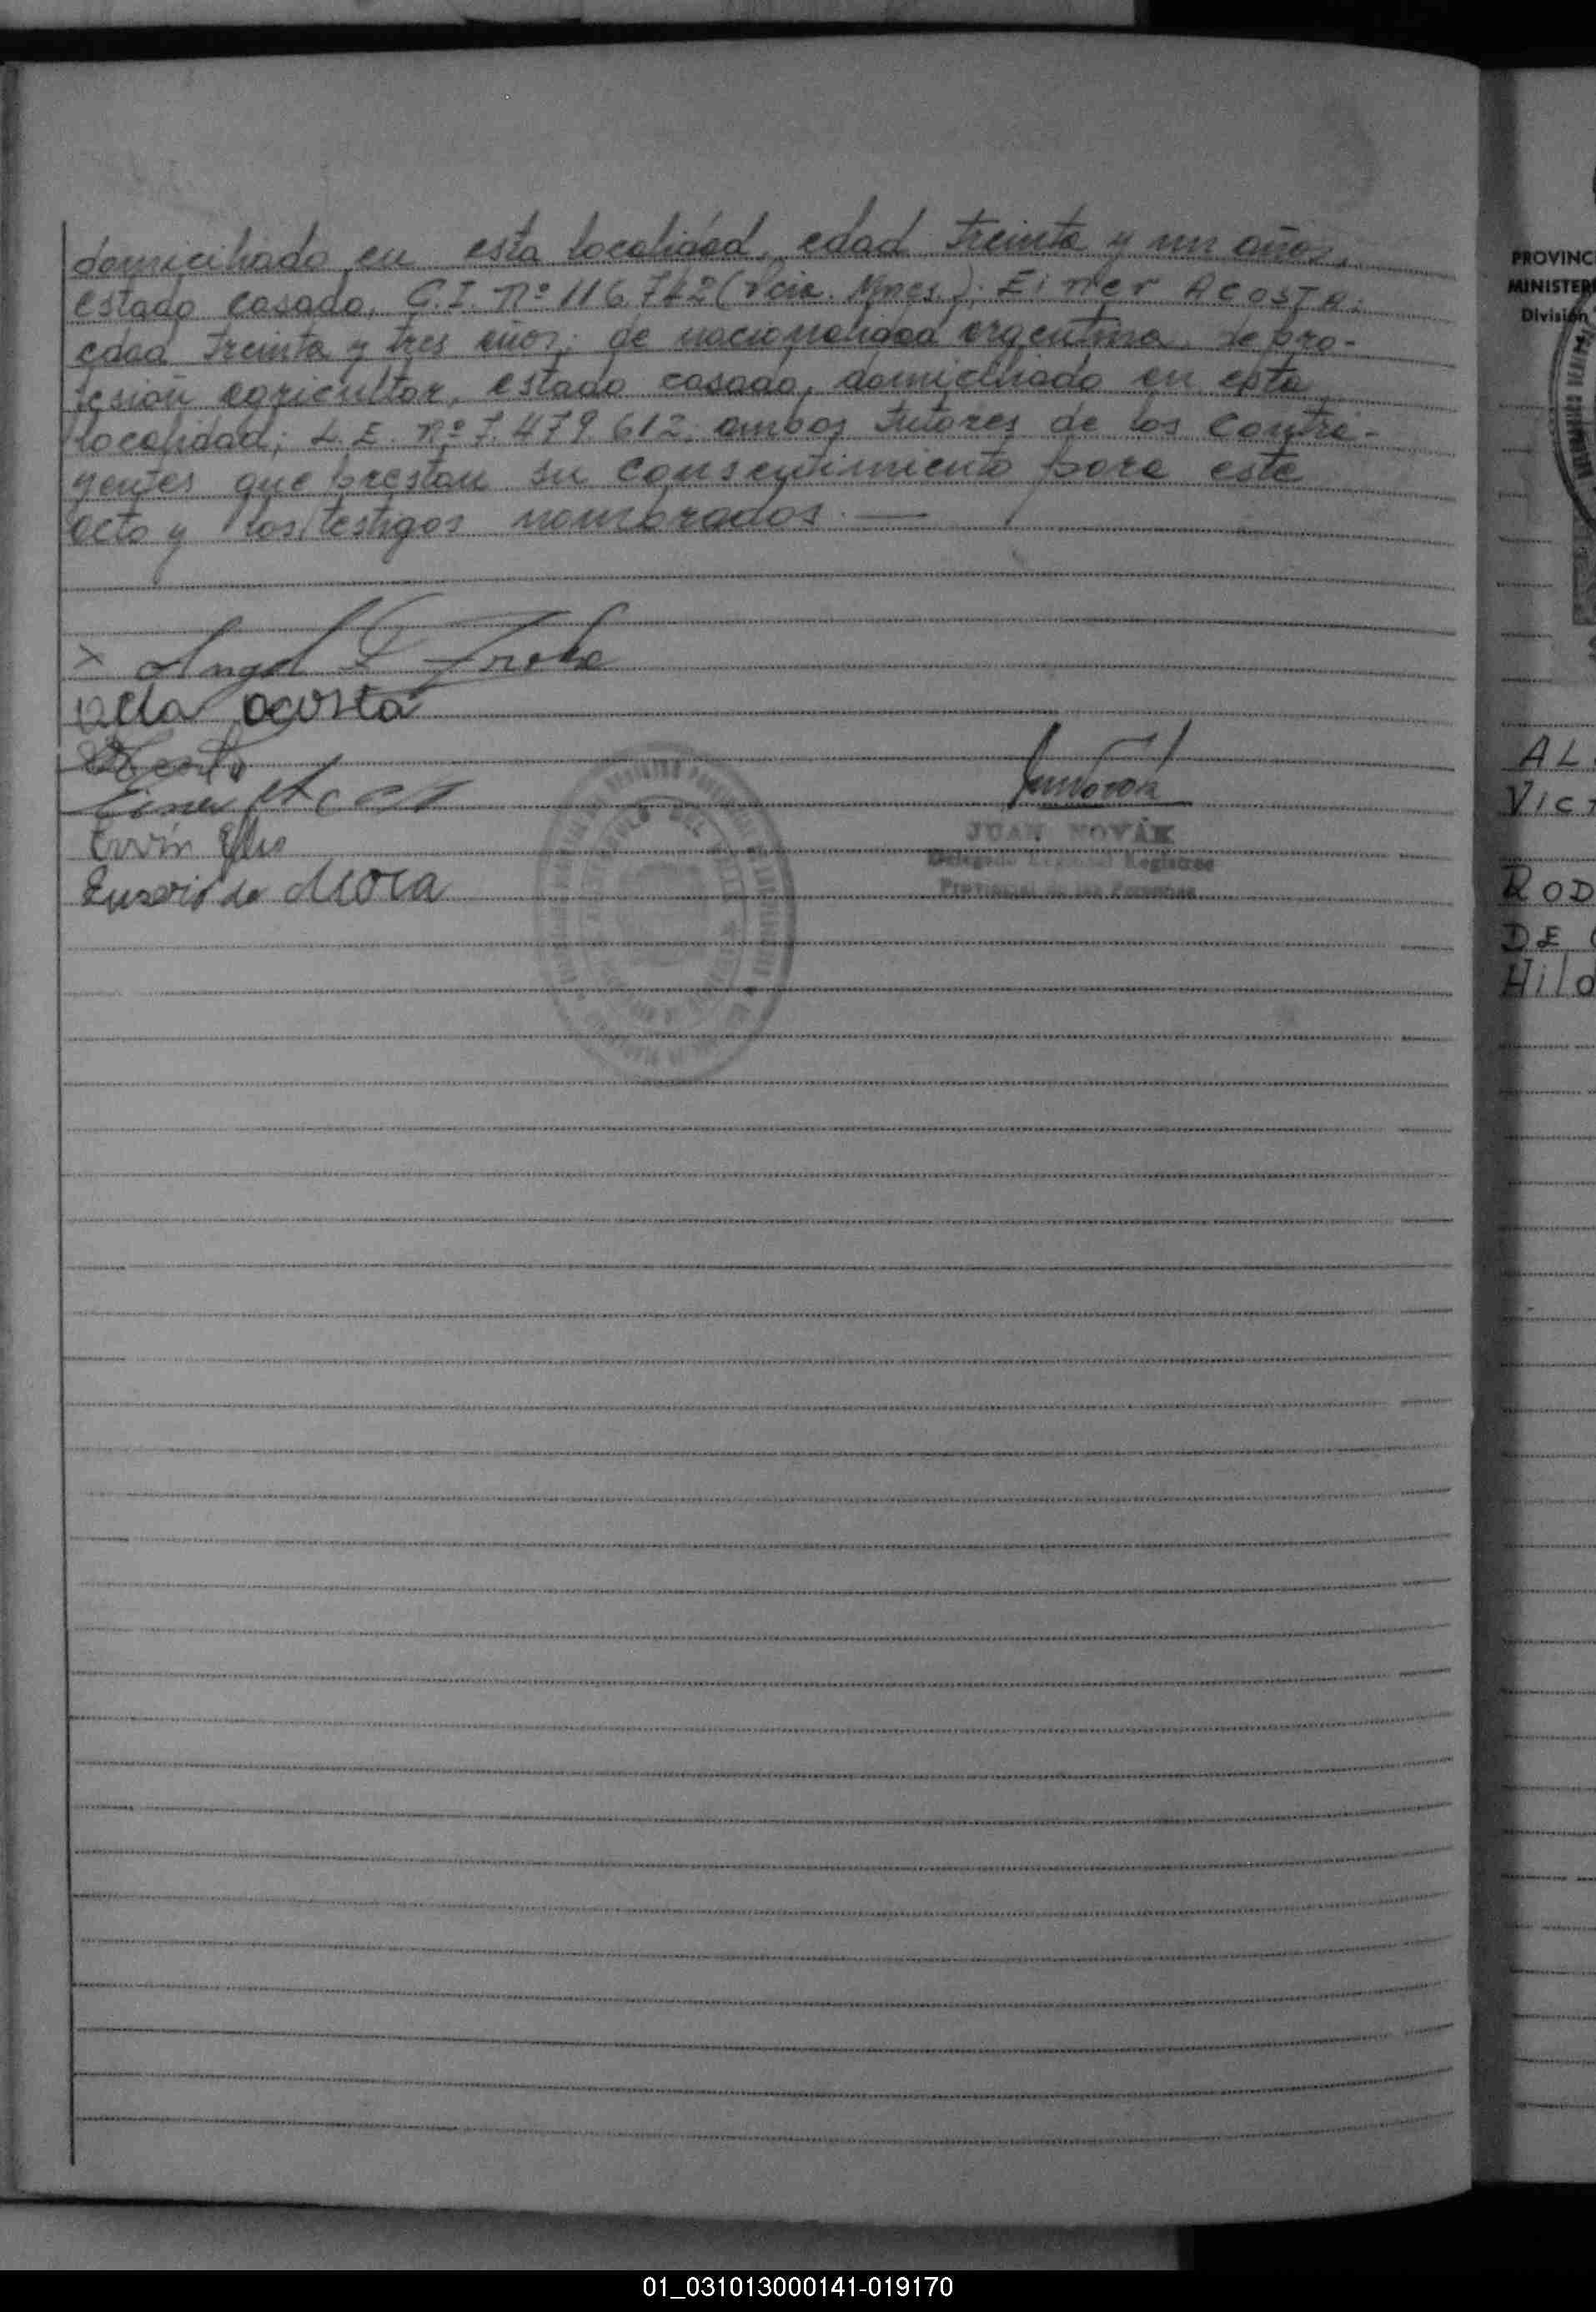 domiciliado en esta localidad, edad treinta y un años,
estado casado, C.I. Nº 116.742 (Pcia. Mnes.); Eimer ACOSTA:
edad treinta y tres años, de nacionalidad argentina, de pro-
fesión agricultor, estado casado, domiciliado en esta
localidad; L.E. Nº 7.479.612; ambos tutores de los Contra-
yentes que prestan su consentimiento para este
acto y los testigos nombrados.—
x Angel
acosta
Eimer
Ervin
da Mora
JUAN NOVÁK
Delegado Regional Registros
Provincial de las Personas
PROVINC
MINISTER
División
AL
VICT
ROD
DE
Hild
01_031013000141-019170